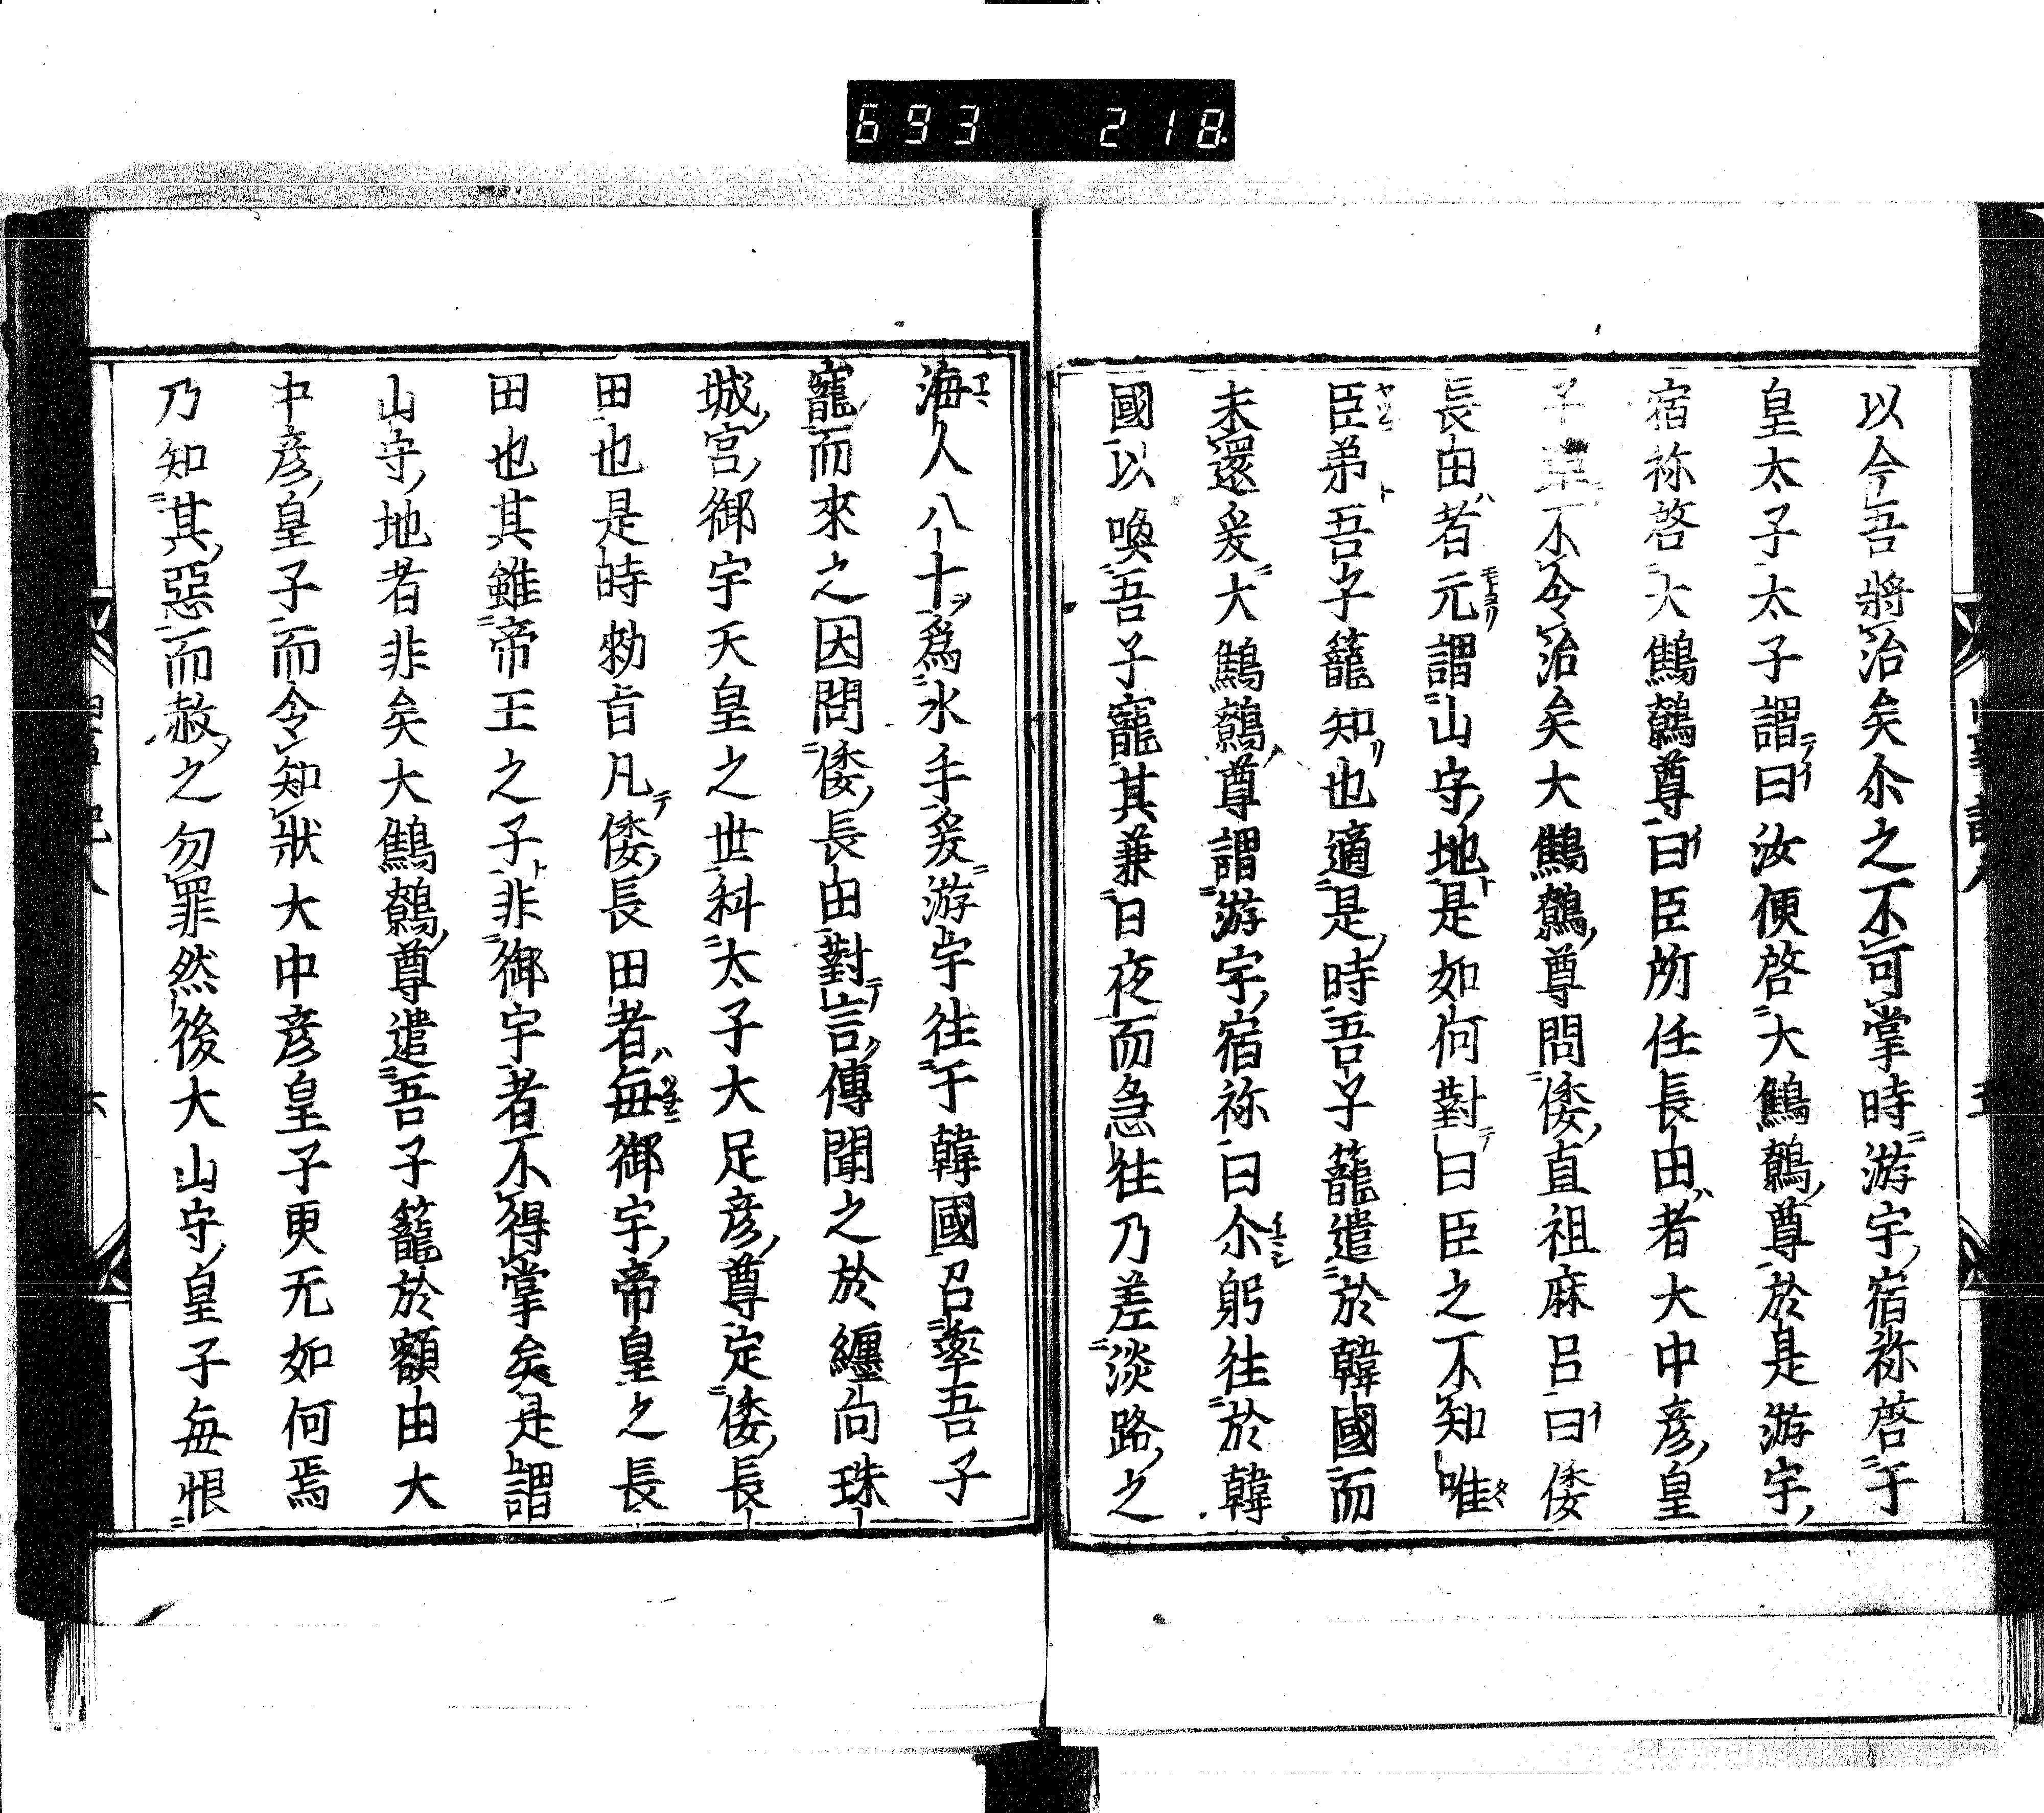 693 218
以今吾將治矣尒之不可掌時游宇宿祢啓于
皇太子太子謂曰汝便啓大鷦鷯尊於是游宇
宿祢啓大鷦鷯尊曰臣所任長田者大中彦皇
子不令治矣大鷦鷯尊問倭直祖麻呂曰倭
長田者元謂山守地是如何對曰臣之不知唯
臣弟吾子籠知也適是時吾子籠遣於韓國而
未還爰大鷦鷯尊謂游宇宿祢曰尒躬往於韓
國以喚吾子寵其兼日夜而急往乃差淡路之
海人八十爲水手爰游宇往于韓國召率吾子
寵而來之因問倭長田對言傳聞之於纒向珠
城宮御宇天皇之世科太子大足彦尊定倭長
田也是時勑旨凡倭長田者每御宇帝皇之長
田也其雖帝王之子非御宇者不得掌矣是謂
山守地者非矣大鷦鷯尊遣吾子籠於額田大
中彦皇子而令知狀大中彦皇子更无如何焉
乃知其惡而赦之勿罪然後大山守皇子每恨